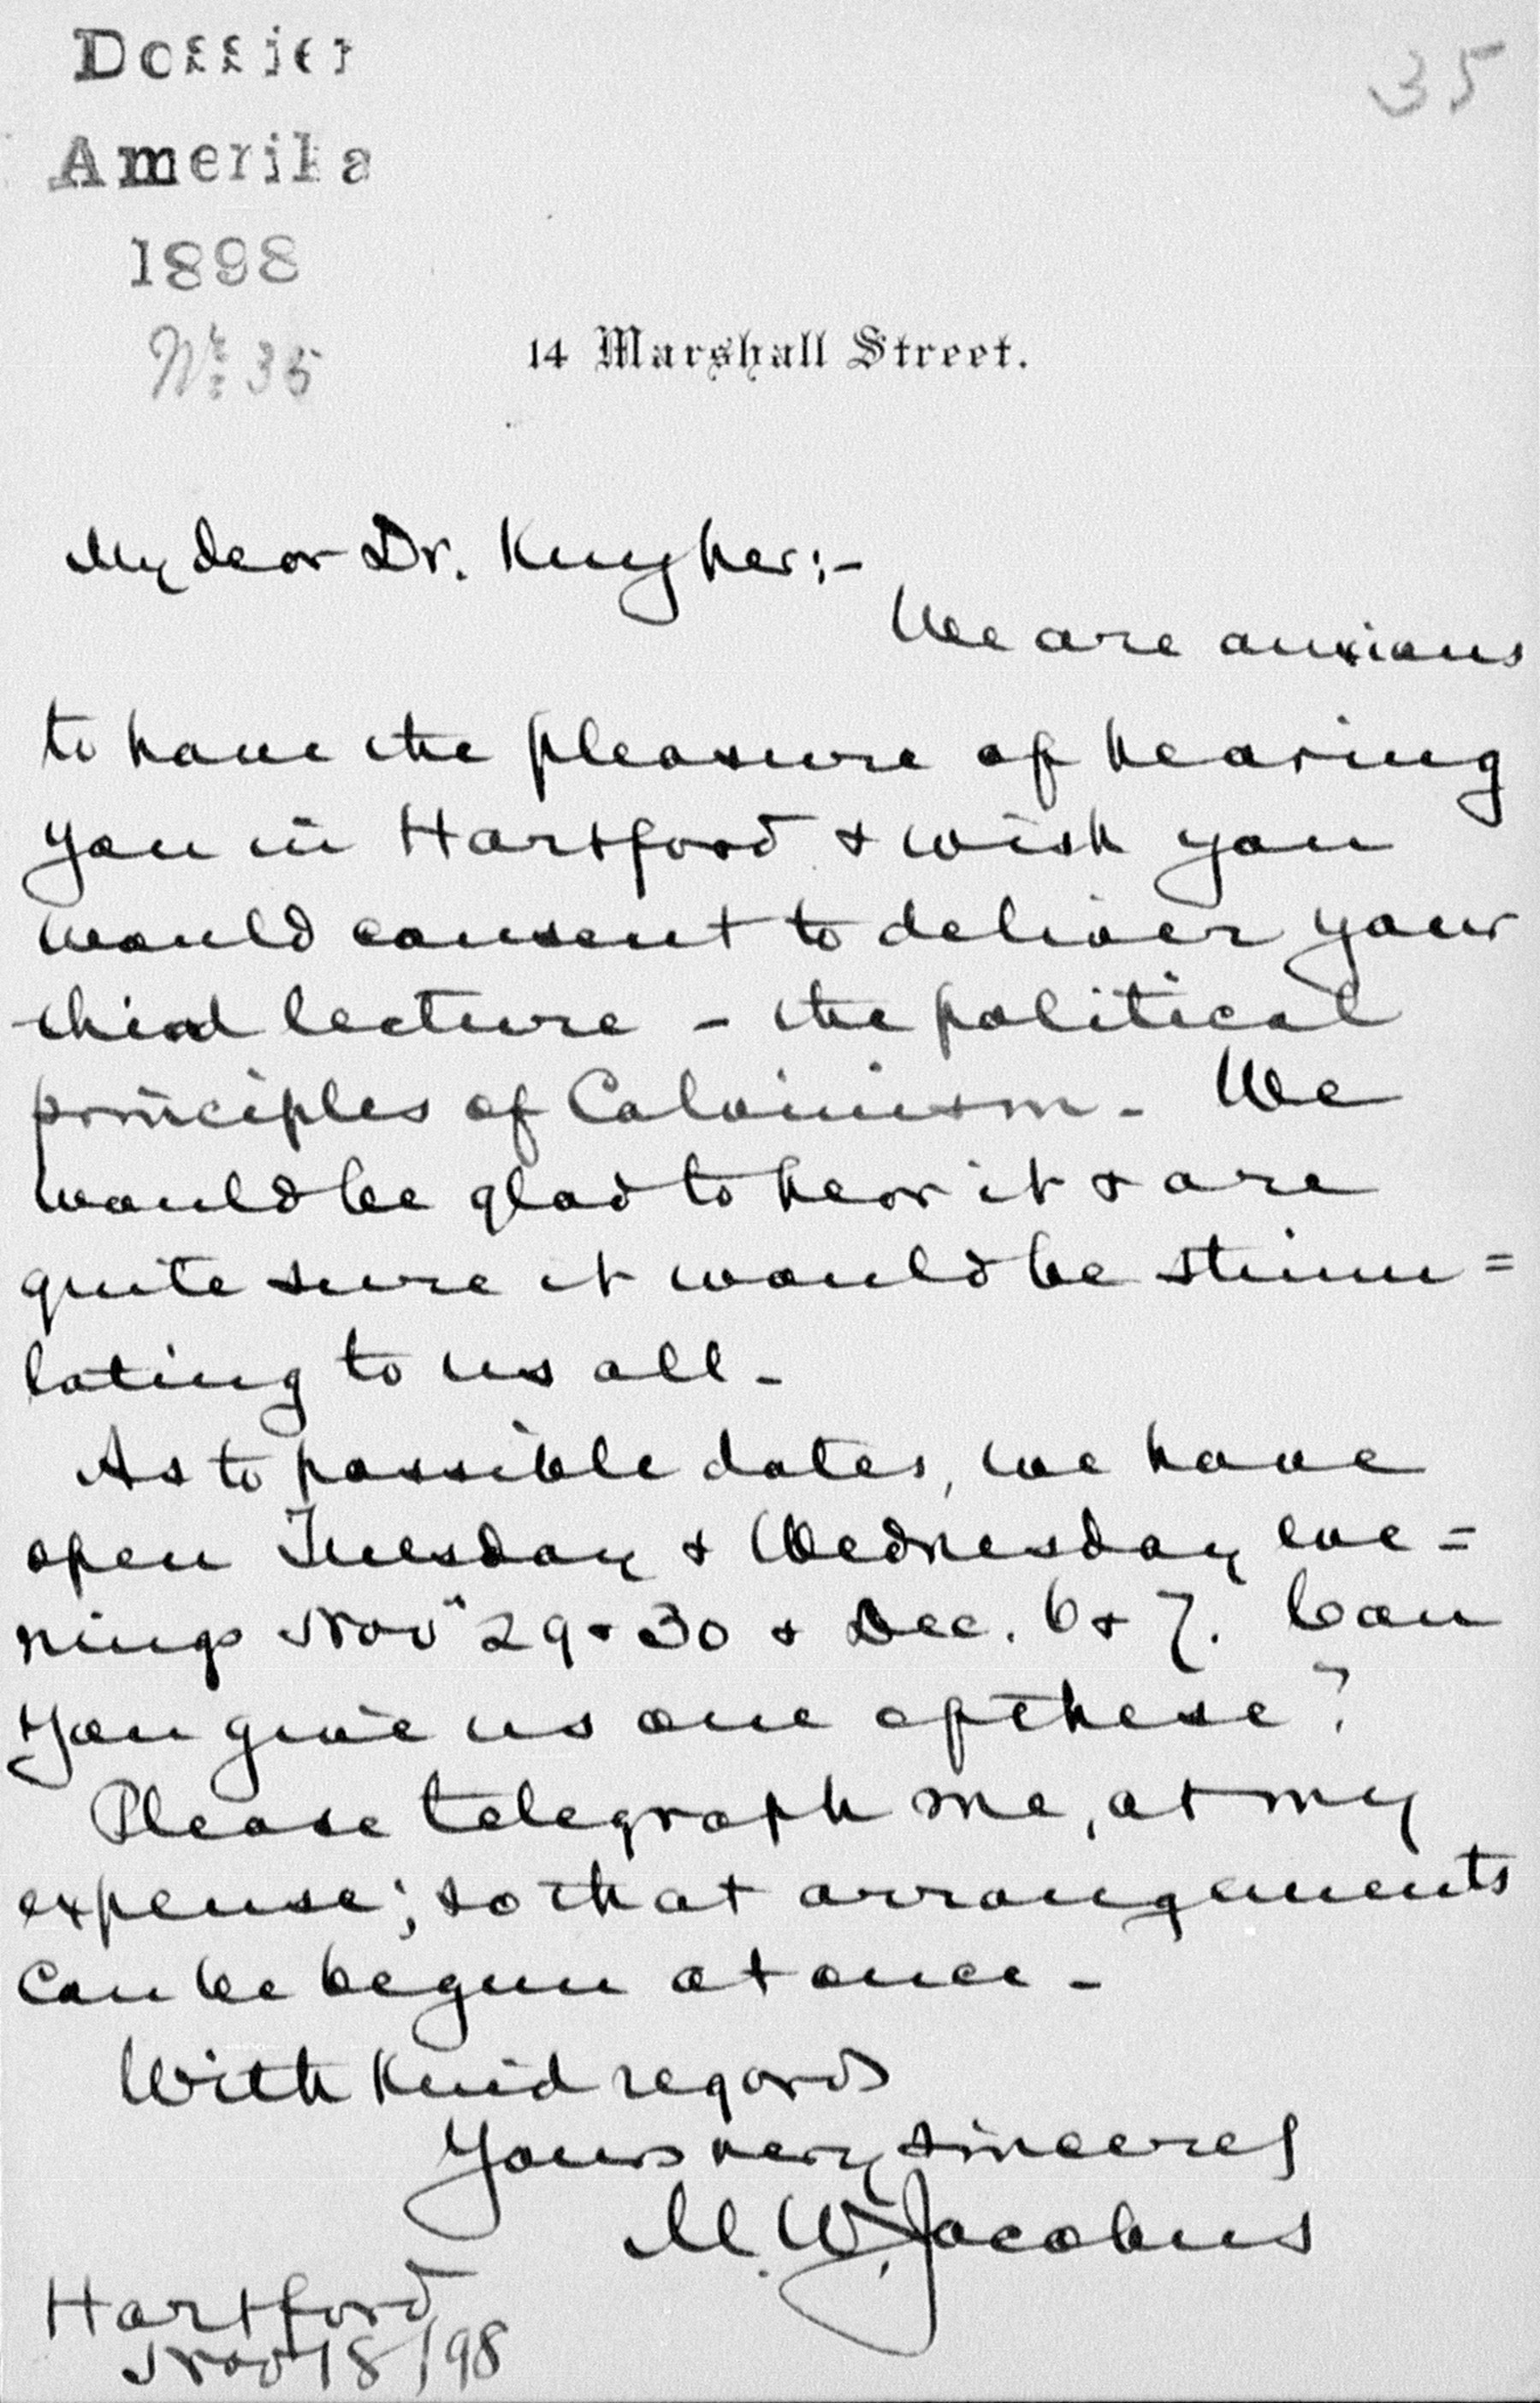 Dossier
35
Amerika
1898
No. 35
14 Marshall Street.
My dear Dr. Kuyper:-
We are anxious
to have the pleasure of hearing
you in Hartford & wish you
would consent to deliver your
third lecture - the political
principles of Calvinism - We
would be glad to hear it & are
quite sure it would be stimu=
lating to us all -
As to possible dates, we have
open Tuesday & Wednesday eve=
nings Nov 29 & 30 & Dec. 6 & 7. Can
you give us one of these?
Please telegraph me, at my
expense; so that arrangements
can be begun at once -
With kind regards
Yours very sincerely
M. W. Jacobus
Hartford
Nov 18/98